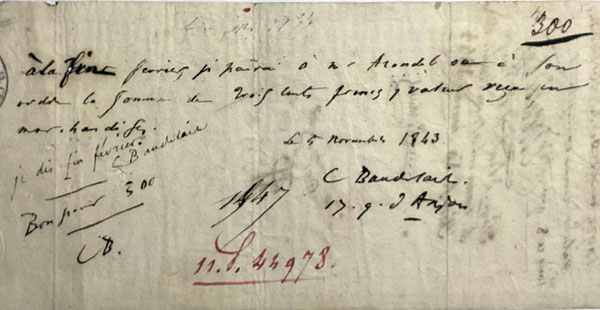 300
à la fin février je paierai à Mr Arondel ou à son
ordre la somme de trois cents francs, valeur reçue en
marchandises.
Le 5 Novembre 1843
je dis fin février.
C Baudelaire
C Baudelaire.
17. q. d'Anjou
Bon pour 300
CB.
1947
11.S. 44978.